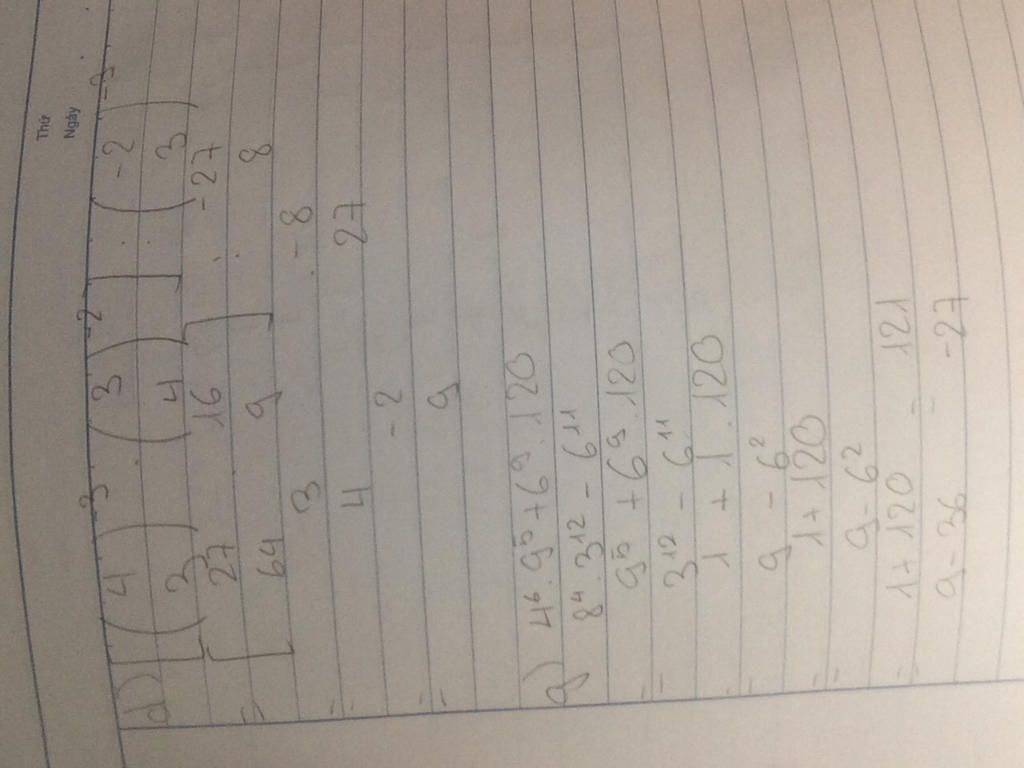 Thứ
Ngày
d) [(4)⁻³ . (3)⁻²] : (-2)⁻³
[(3) (4) ] (3)
= [27 . 16] : -27
64 9 8
= 3 . -8
= 4 27
= -2
9
g) 4⁶ . 9⁵ + 6⁹ . 120
8⁴ . 3¹² - 6¹¹
= 9⁵ + 6⁹ . 120
3¹² - 6¹¹
= 1 + 1 . 120
9 - 6²
= 1 + 120
9 - 6²
= 1 + 120 = 121
9 - 36 -27